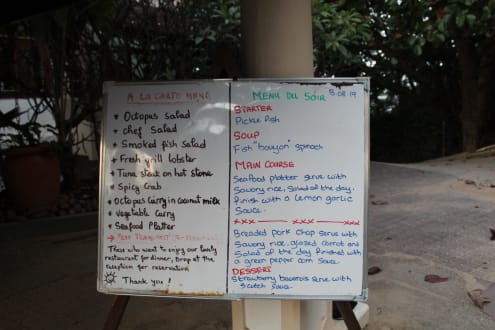 A LA CARTE MENU
* Octopus salad
* chef Salad
* Smoked fish salad
* Fresh grill lobster
* Tuna steak on hot stone
* Spicy Crab
* Octopus Curry in Coconut milk
* vegetable Curry
* Seafood Platter
Those who want to enjoy our lovely
restaurant for dinner, Drop at the
reception for reservation
Thank you!
MENU DU SOIR 5.08.19
STARTER
Pickle fish
SOUP
Fish "bouyon" spinach
MAIN COURSE
Seafood platter serve with
Savory rice, Salad of the day.
finish with a Lemon garlic
Sauce.
xxx xxx xxx
Breaded pork Chop serve with
Savory rice, glazed Carrot and
Salad of the day finished with
a green pepper corn Sauce.
DESSERT
Strawberry bavarois serve with
Scotch Sauce.